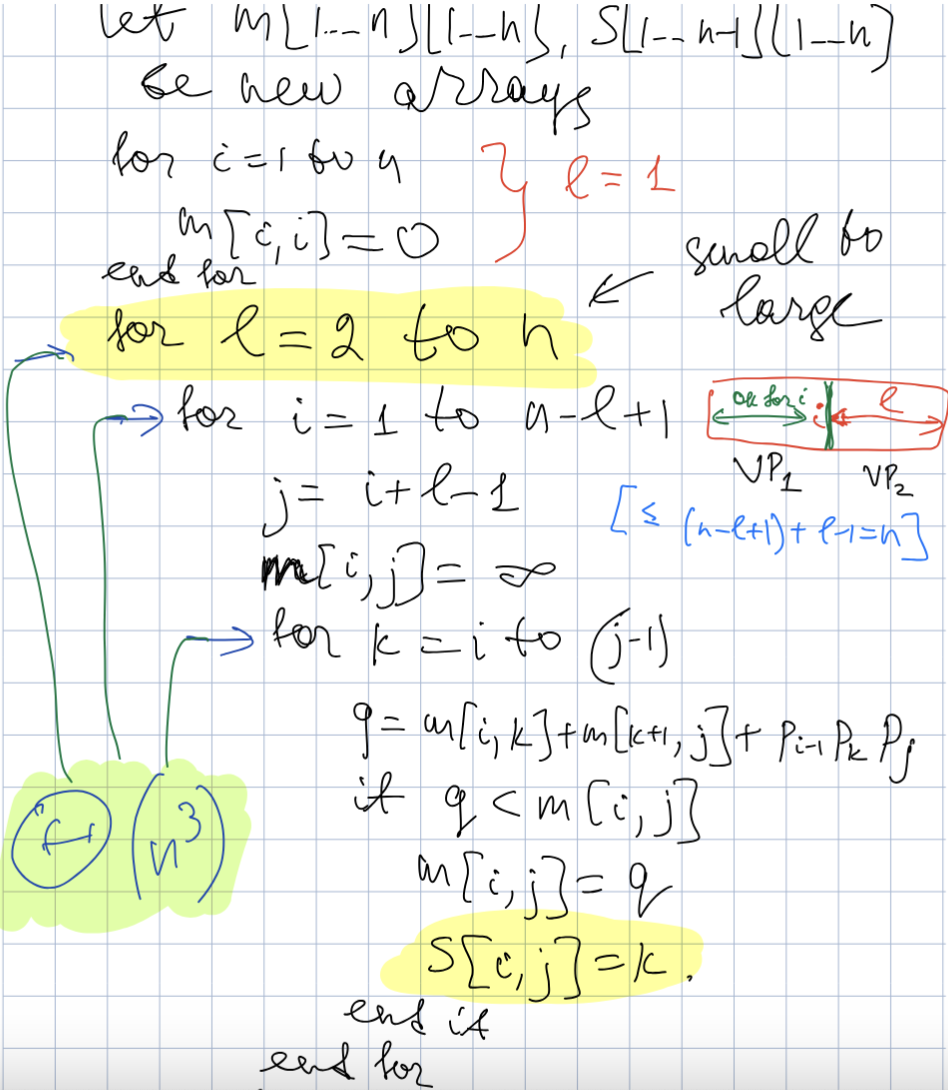 let m[1--n][1--n], S[1--n-1][1--n]
be new arrays
for i=1 to n } l = 1
m[i,i]=0
end for
small to
large
for l = 2 to n
for i = 1 to n-l+1
ok for i i l
VP1 VP2
j = i+l-1
[≤ (n-l+1)+l-1=n]
m[i,j] = ∞
for k = i to (j-1)
q = m[i,k]+m[k+1,j]+ Pi-1 Pk Pj
if q < m[i,j]
Θ (n³)
m[i,j] = q
S[i,j] = k.
end if
end for